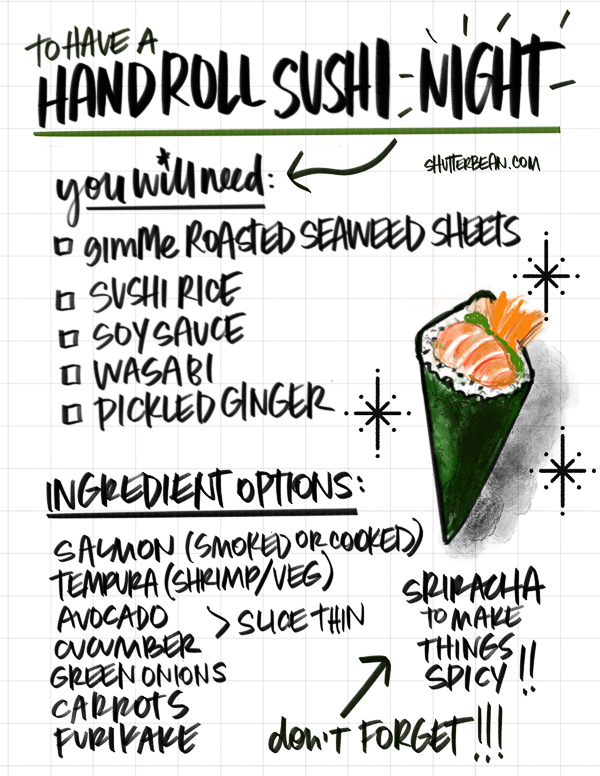 TO HAVE A
HANDROLL SUSHI NIGHT
SHUTTERBEAN.COM
you *will need:
gimme ROASTED SEAWEED SHEETS
SUSHI RICE
SOY SAUCE
WASABI
PICKLED GINGER
INGREDIENT OPTIONS:
SALMON (SMOKED OR COOKED)
TEMPURA (SHRIMP/VEG)
AVOCADO
CUCUMBER
> SLICE THIN
GREEN ONIONS
CARROTS
FURIKAKE
SRIRACHA
TO MAKE
THINGS
SPICY!!
don't FORGET!!!